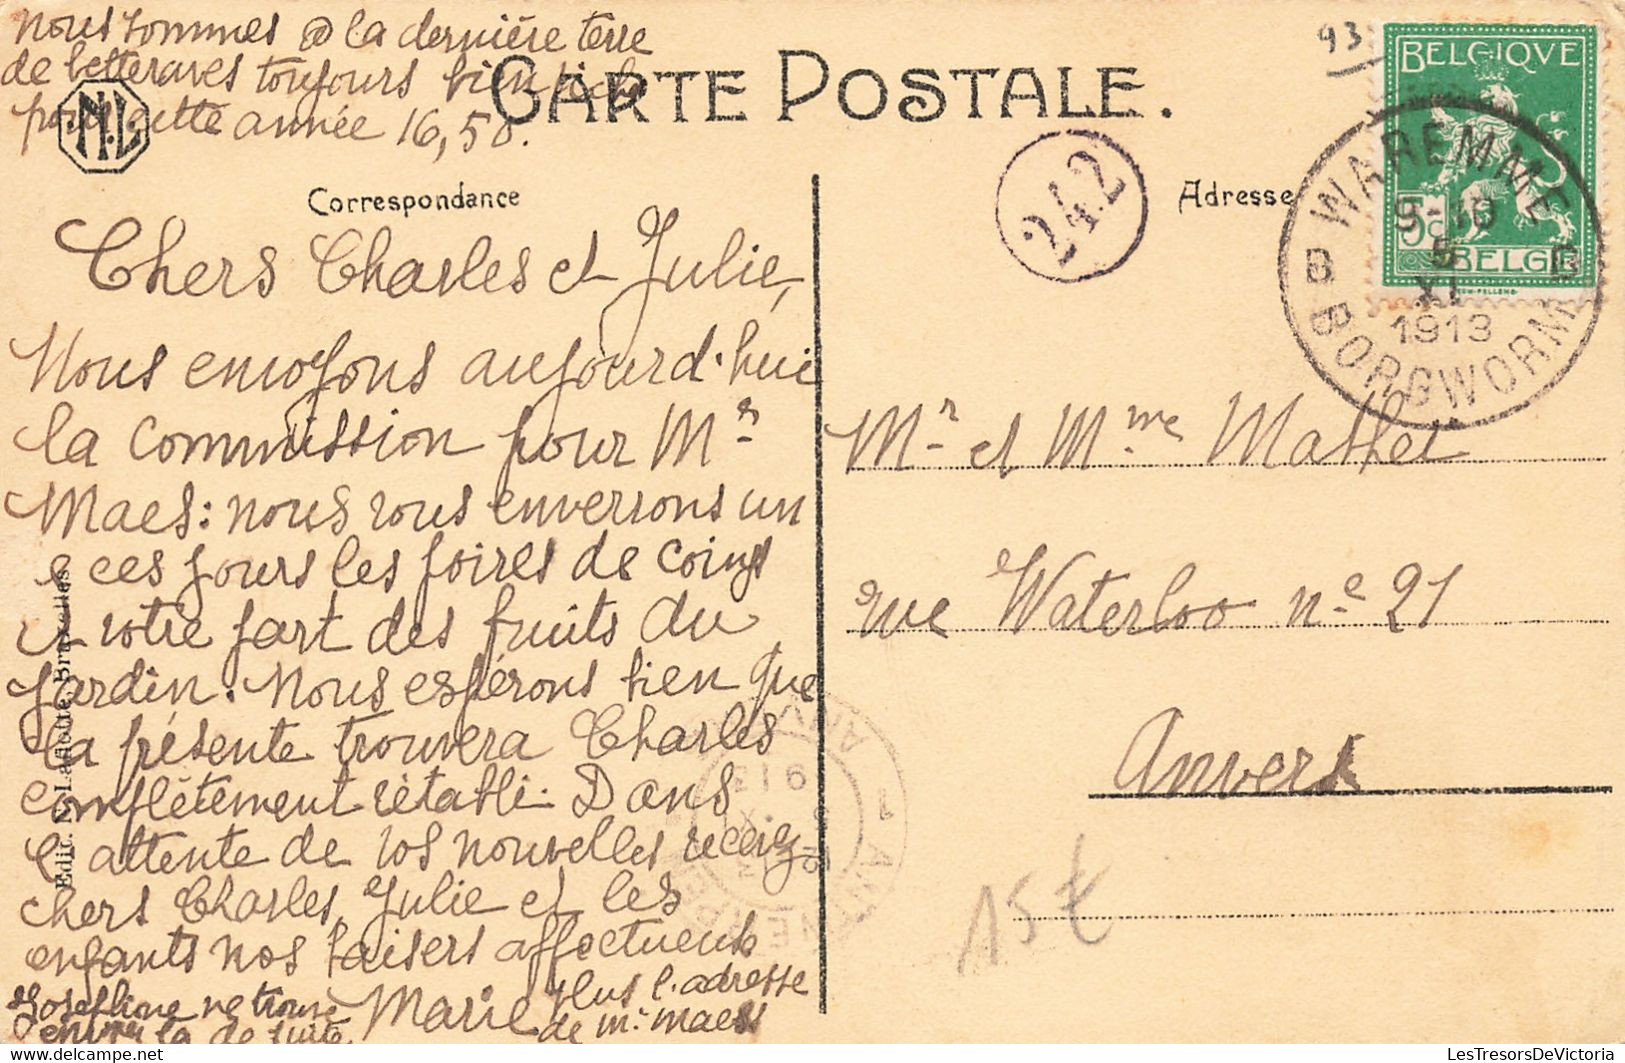 nous sommes @ la dernière terre
de betteraves toujours bien
pour cette année 16,50.
N.L
CARTE POSTALE.
93
BELGIQUE
5c
BELGIË
WAREMME
9-10
5
XI
1913
B B
BORGWORM
242
Correspondance
Adresse
Chers Charles et Julie,
Nous envoyons aujourd'hui
la commission pour Mr
Maes: nous vous enverrons un
ces jours les poires de coings
et votre part des fruits du
jardin. Nous espérons bien que
la présente trouvera Charles
complètement rétabli. Dans
l'attente de vos nouvelles recevez
chers Charles, Julie et les
enfants nos baisers affectueux
Marie
Joséphine ne trouve
plus l'adresse
de Mr Maes
envoyer la de suite
Edit. N. Laflotte, Bruxelles
Mr et Mme Mathet
rue Waterloo no 21
Anvers
15€
LesTresorsDeVictoria
www.delcampe.net